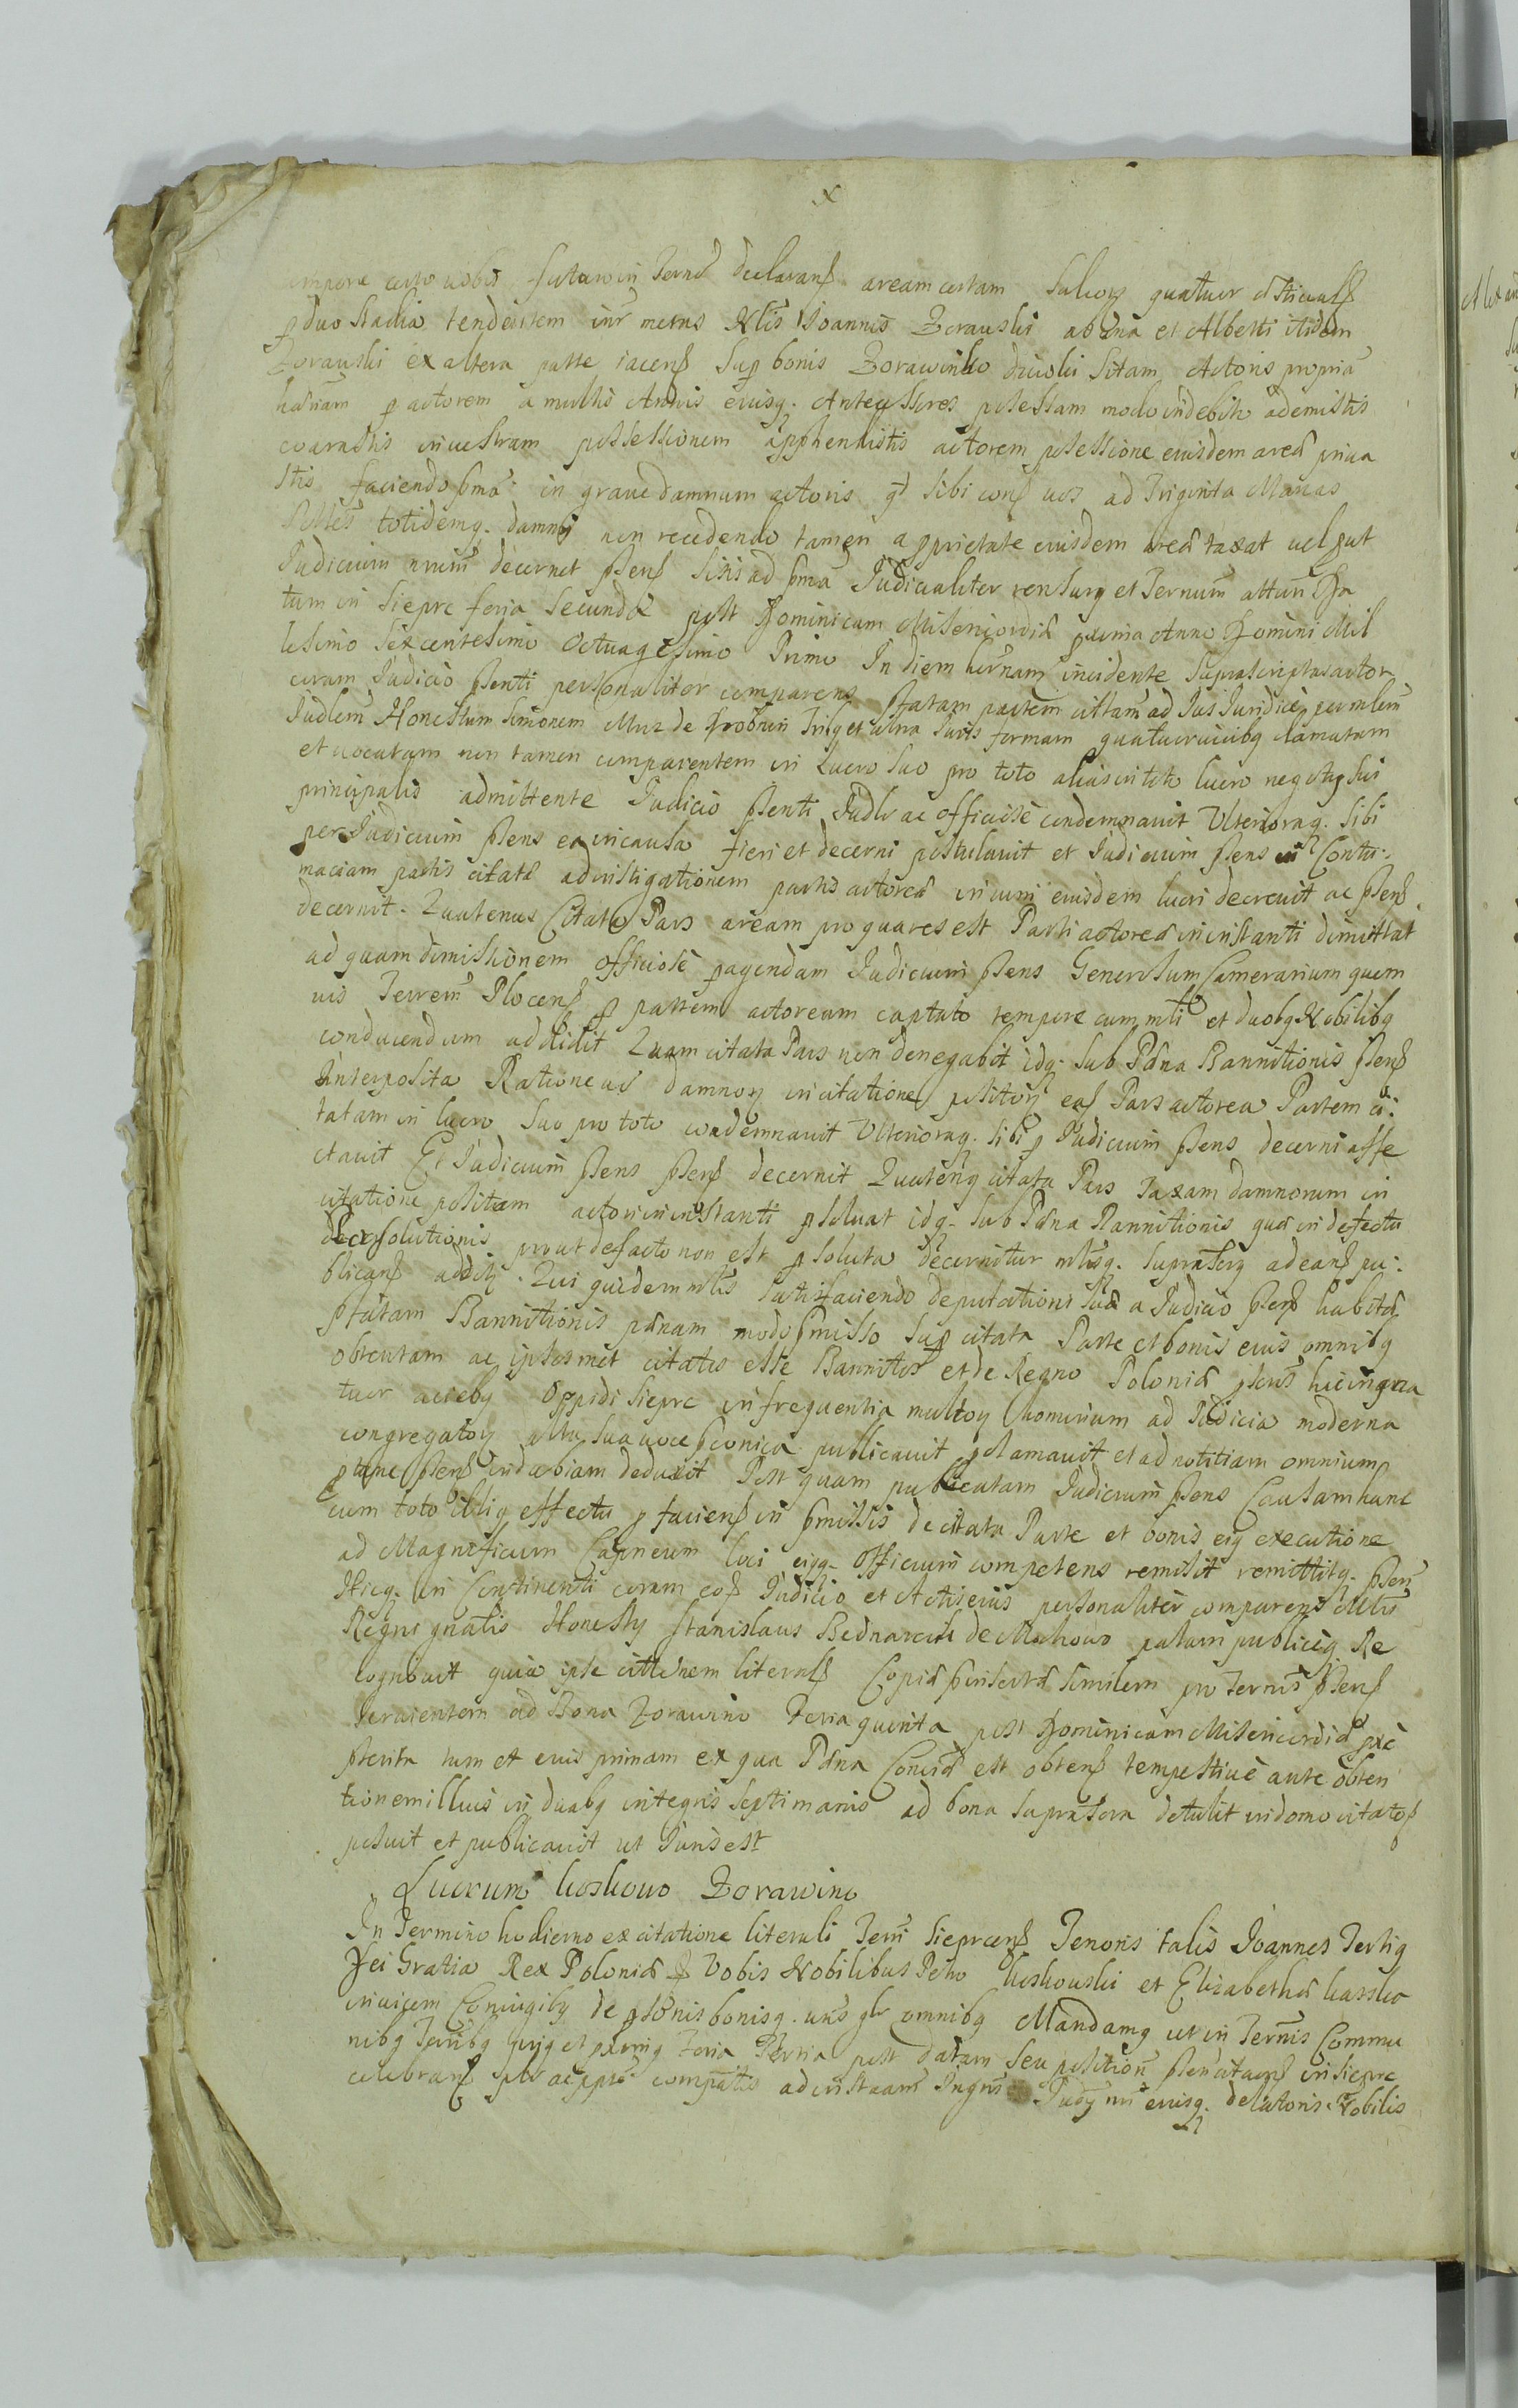 x
certo nobis futuro in Termis declarans aream certam Sulcorum quatuor
p duo stadia tendentem intr metas Nlis Joannis Zorauski ab una et Alberti itidem
Zorauski ex altera parte iacens sup bonis Zorawinko dictis sitam Actoris propriam
p actorem a multis Annis eiusq. Antecessores possessam modo indebite ademistis
coarastis in uestram possessionem apprehendistis actorem possessione eiusdem areæ priua
stis faciendo pmta in graue damnum actoris qd sibi cons uos ad Triginta Marcas
totidemq. damni non recedendo tamen a pprietate eiusdem areæ taxat uel put
Iudicium decernet pens sitis ad pma Iudicialiter rensuri et Ternum attun Da
tum in Sieprc feria secunda post Dominicam Misericordiæ pxima Anno Domini Mil
lesimo Sexcentesimo Octuagesimo Primo In diem hernam incidente Suprascriptus actor
coram Iudicio psenti personaliter comparens ptatam partem cittam ad Ius Iuridice per mlem
Iudlem Honestum Simonem de Drobnin iuris formam quatuor uicibq clamatam
et uocatam non tamen comparentem in lucro suo pro toto alias in toto lucro negotij sui
principalis admittente Iudicio psenti Iudlr ac officiose condemnauit Vlteriorag. sibi
per Iudicium psens ea in causa fieri et decerni postulauit et Iudicium psens in Contu-
maciam partis citatæ ad instigationem partis actoreæ in uim eiusdem lucri decreuit ac psens
decernit. Quatenus Citata Pars aream pro qua res est Parti actoreæ in instanti dimittat
ad quam dimissionem officiose pagendam Iudicium psens Generosum Camerarium quem
uis Terrem Plocens p partem actoream captato tempore cum mli et duobq Nobilibq
conducendum addidit Quam citata Pars non denegabit idq. sub Pæna Bannitionis psens
interposita Ratione uo damnorum in citatione positorum eas Pars actorea Partem ci-
tatam in lucro suo pro toto condemnauit Vlteriorag. sibi p Iudicium psens decerni affe
ctauit Et Iudicium psens psens decernit Quatenq citata Pars taxam damnorum in
citatione positam actori in instanti psoluat idq. sub Pæna Bannitionis quæ in defectu
psolutionis prout de facto non est psoluta decernitur mlisq. suprascrip ad eans pu-
blicans additq. Qui quidem mlis satisfaciendo deputationi suæ a Iudicio psens habitæ
ptatam Bannitionis pænam modo pmisso sup citata Parte et bonis eius omnibq
obtentam ac ipsosmet citatos esse Bannitos et de Regno Poloniæ pscns hic in qua
tuor aciebq Oppidi Sieprc in frequentia multorum hominum ad Iudicia moderna
congregatorum alta sua uoce pconica publicauit pclamauit et ad notitiam omnium
ptunc psens indubiam deduxit Post quam publicatam Iudicium psens Causam hanc
cum toto illiq effectu p faciens in pmissis de citata Parte et bonis eiq executione
ad Magnificum Capneum loci eiqq. Officium competens remisit remittitq. psens
Hicq. in Continenti coram eos Iudicio et Actis eius personaliter comparens Mlis
Regni gnalis Honestq Stanislaus Bednarcik de Mochowo palam publiceq. Re
cognouit quia ipse cittnem literals Copiæ pinsertæ similem pro Ternis psens
seruientem ad Bona Zorawino Feria quinta post Dominicam Misericordiæ pxe
pterita tum et eius primam ex qua Pæna Concia est obtens tempestiue ante obten
tionem illius in duabq integris septimanis ad bona suprascra detulit in domo citatos
posuit et publicauit ut Iuris est
Lucrum koskowo Zorawino
In Termino hodierno ex citatione literali Terri Sieprcens Tenoris talis Ioannes Tertiq
Dei Gratia Rex Poloniæ Vobis Nobilibus Petro koskowski et Elizabethæ
inuicem Coniugibq de psonis bonisq. uris glr omnibq Mandamq ut in Ternis Commu
nibq Terribq prijq et pximq Feria Tertia post datam seu position psen citaons in Sieprc
celebrans plr ac compatis ad instaam Ingni Iudij nri eiusq. delatoris Nobilis